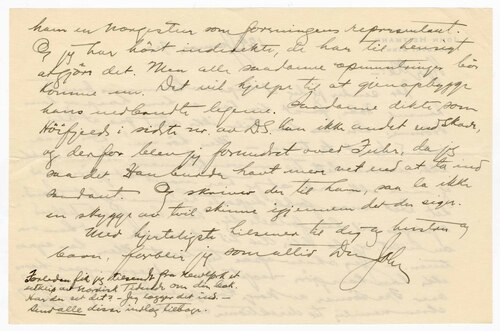 ham en Norgestur som foreningens representant.
Og jeg har hört indirekte, de har til hensigt
at gjöre det. Men alle saadanne opmuntringer bör
komme nu. Det vil hjelpe til at gjenopbygge
hans nedbrudte legeme. Saadanne dikte, som
i sidste nr. av D.S. kan ikke andet end skade,
og derfor blev jeg forundret over Juhr, da jeg
saa det. Han burde havt mere vet end at ta ind
sandant. Og skriver du til ham, saa la ikke
en skygge av tvil skinne igjennem det du siger.
Med hjerteligste hilsener til dig og hustru og
barn, forblir jeg som altid Din
Forleden fik jeg tilsendt fra et
utklip av Nordisk Tidende om din bok.
Har du set det? Jeg lægger det ind.
Send alle disse indlæg tilbage.